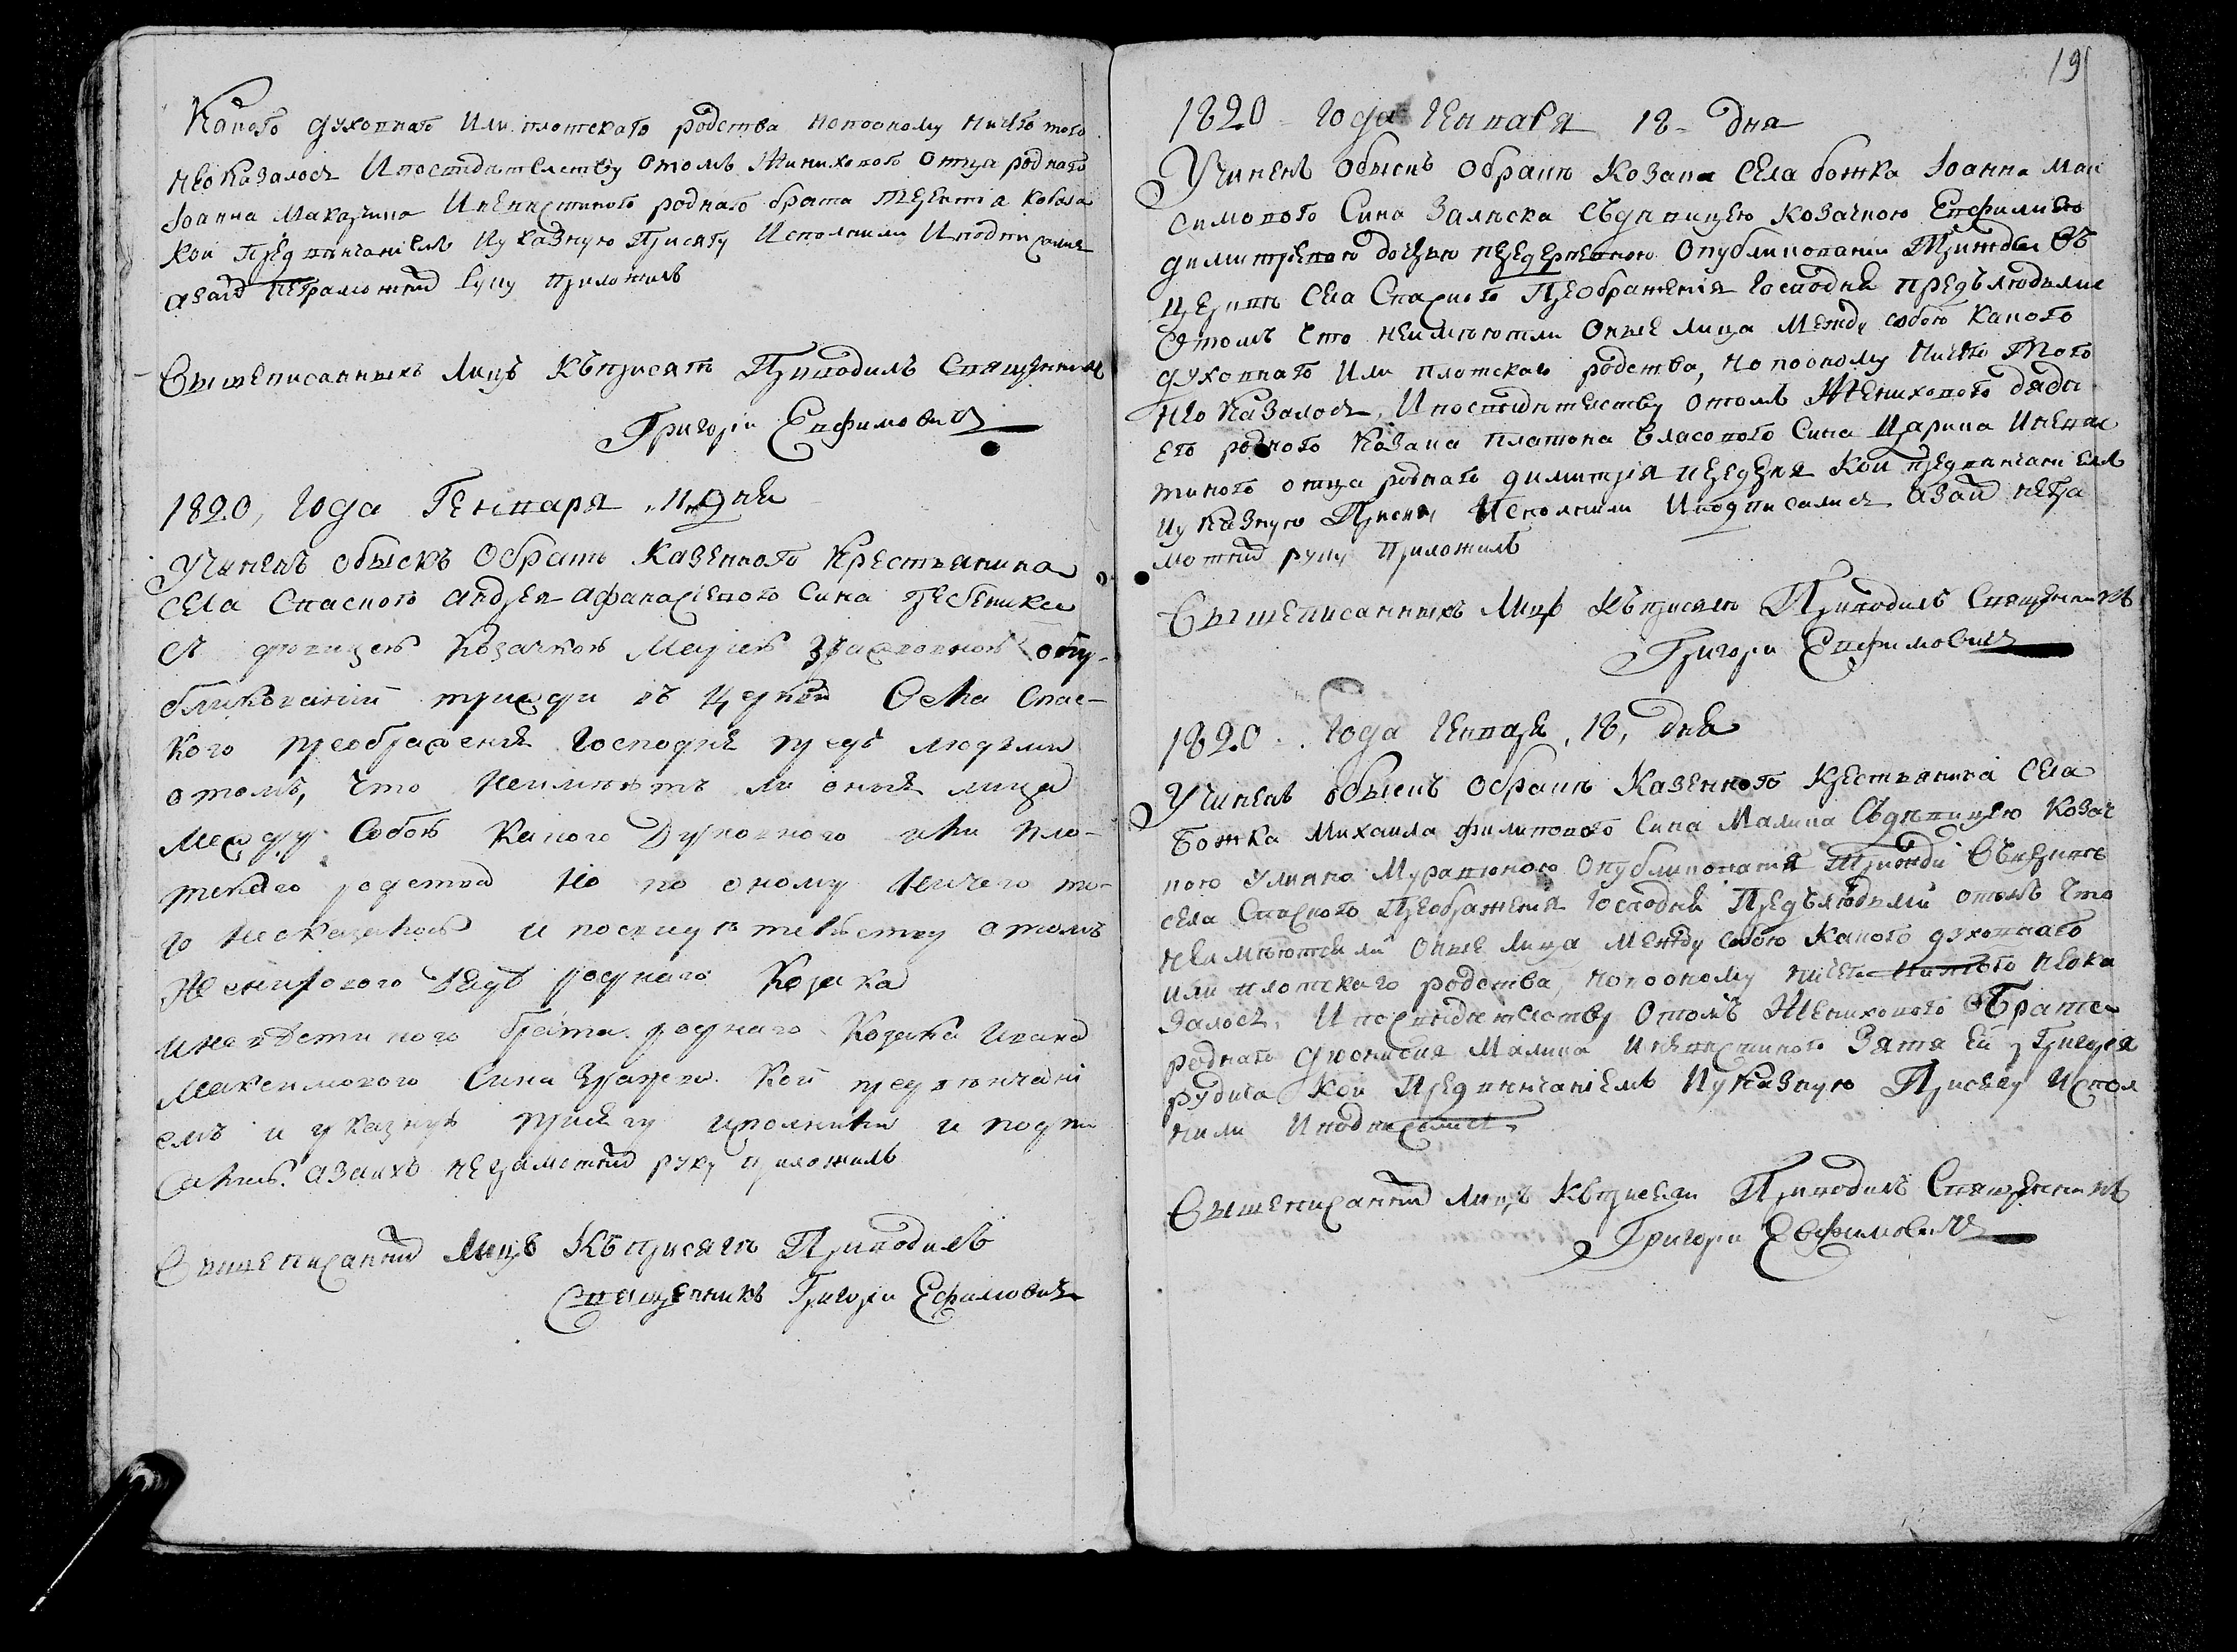 Какого духовнаго Или плотскаго родства нопооному ничего того
неоказалось Ипосвидѣтелству Отомъ Женихового отца роднаго
Іоанна Макарина Иневестиного роднаго брата Терентіа Ковала
Кои Предвѣнчаніемъ Иуказную Присягу Исполнили Иподписалис
азаих неграмотнид Руку приложилъ
Вышеписанныхъ Лицъ Къприсягѣ Приводилъ Священникъ
Григорій Евфимовичъ
1820, Года Генваря 11 Дня
Учиненъ обыскъ Обракѣ Казенного Крестьянина
села Спаского андрея афанасіевого Сина Гребеника
съ девицею Козачкою Маріею опу-
бликованіи трижди въ Церкви Села Спас-
кого преображенія Господня предъ людьми
отомъ, Что Неимѣютъ ли оные лица
между Собою Какого Духовного или пло-
тскаго родства Но по оному ничего то-
го неоказалось и посвидѣтелству отомъ
Женихового дядѣ роднаго Козака
иневѣстиного брата роднаго Козака Ивана
Максимового Сина кои предвѣнчані
емъ и указную присягу исполнили и подпи
сались. азаихъ неграмотнид руку приложилъ
Вышеписаннид Лицъ Къприсягѣ Приводилъ
Священникъ Григорій Ефимовичъ
19
1820 Года Генваря 18 Дня
Учиненъ Обыскъ Обракѣ Козака Села божка Іоанна Мак
симового Сина Залѣска Съдѣвицею Козачкою Евфиміею
димитріевою дочерью Опубликованіи Трижды Въ
церкви Села Спаского Преображенія Господня предълюдьмы
Отомъ Что неимѣютли Оные лица Между собою Какого
духовнаго Или плотскаго родства, нопооному Ничего Того
неоказалось, Ипосвидѣтелству Отомъ Женихового дяди
его родного Козака Платона Власового Сина Царика Иневис
тиного отца роднаго димитрія Кои предвѣнчаніемъ
Иуказную Присягу Исполнили Иподписалися азаид негра
мотнид руку приложилъ
Вышеписанныхъ Лицъ Къприсягѣ Приводилъ Священникъ
Григорій Евфимовичъ
1820 Года Генваря, 18, дня
Учиненъ обыскъ Обракѣ Казенного Крестьянина Села
Божка Михаила филипового Сина Малика Съдѣвицею Козач
кою Улияною Опубликованія Трижди Въцеркви
села Спаского Преображенія Господня Предълюдьми отомъ Что
неимѣютъ ли Оные Лица Между собою Какого духовнаго
или плотскаго родства, нопооному неока
залось, Ипосвидѣтелству Отомъ Женихового Брата
роднаго дионисия Малика Иневѣстиного Зятя Ей Григорія
рудика Кои Предвѣнчаніемъ Иуказную Присягу Испол
нили Иподписались
Вышеписаннид Лицъ Къприсягѣ Приводилъ Священникъ
Григорій Евфимовичъ